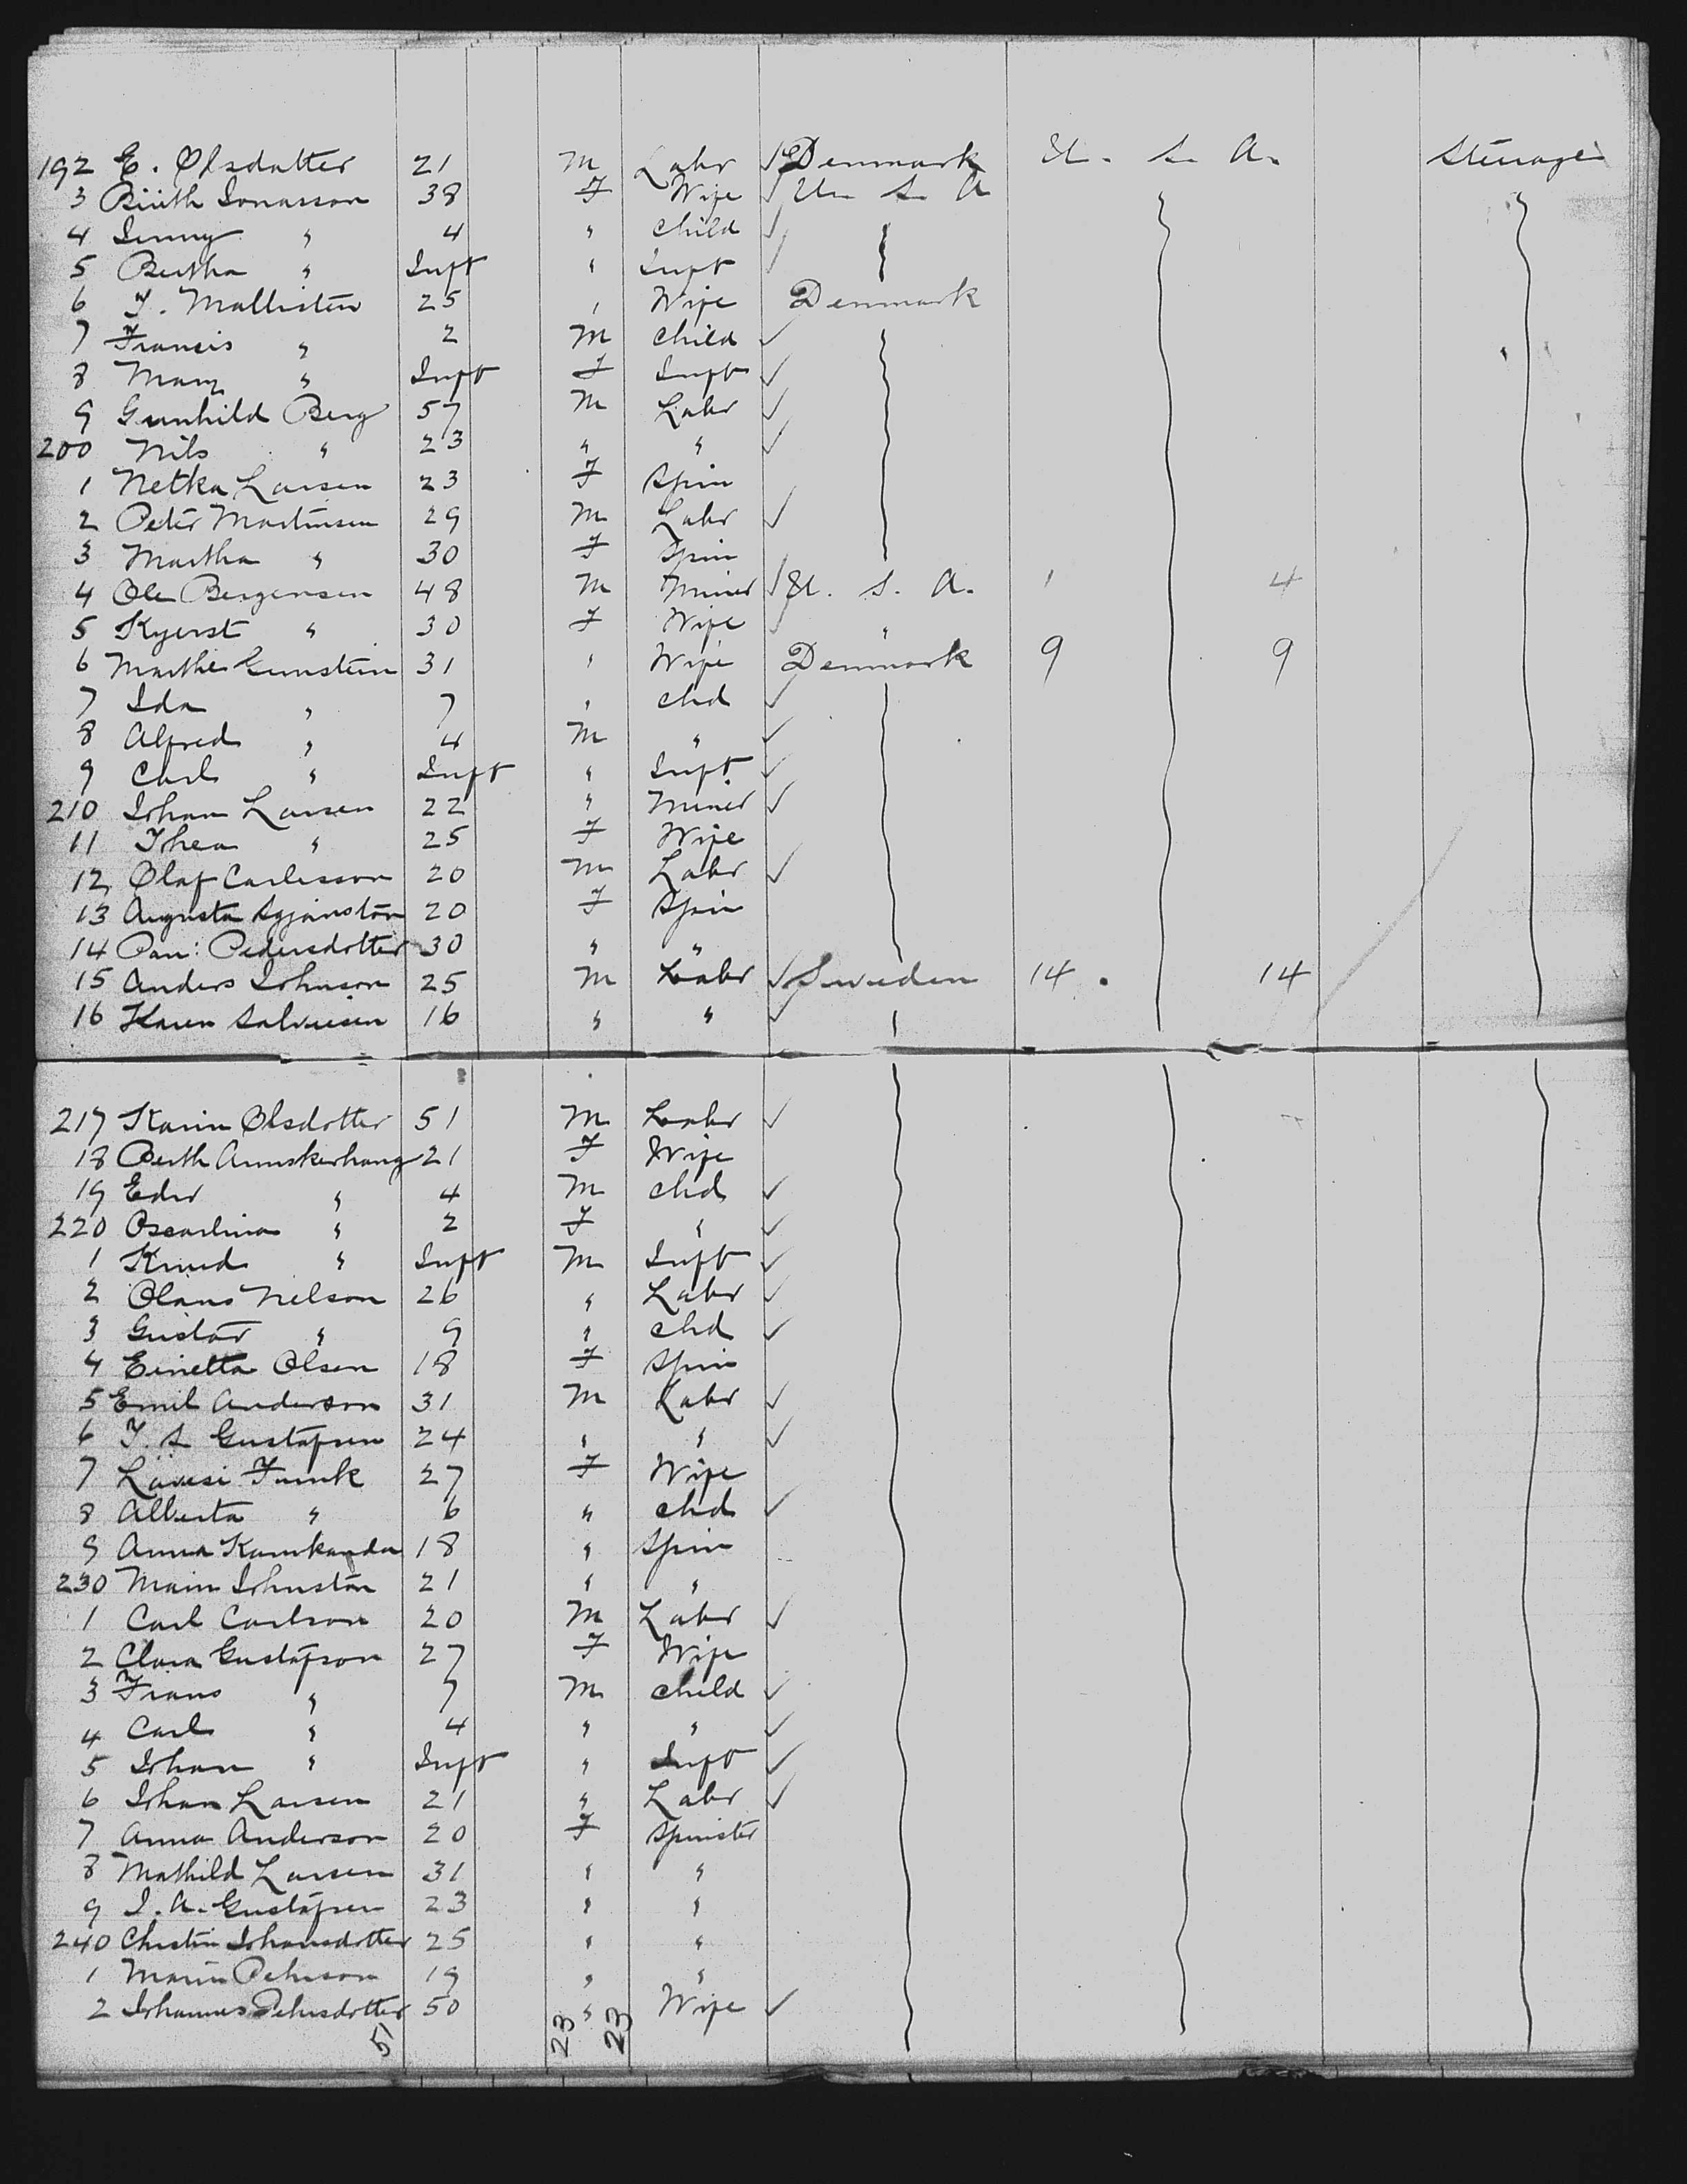 192 E. Olsdatter 21 M Labr ✓ Denmark U. S. A. Steerage
3 Birith Jonasson 38 F Wife ✓ U. S. A
4 Jenny " 4 " Child ✓
5 Bertha " Inft " Inft ✓
6 T. Mallisten 25 " Wife Denmark
7 Francis " 2 M Child ✓
8 Mary " Inft F Inft ✓
9 Gunhild Berg 57 M Labr ✓
200 Nils " 23 " " ✓
1 Netka Larsen 23 F Spin
2 Peter Martinsen 29 M Labr ✓
3 Martha " 30 F Spin
4 Ole Bergensen 48 M Miner ✓ U. S. A. 1 4
5 Kyerst " 30 F Wife ✓ "
6 Marthe Gunstein 31 " Wife Denmark 9 9
7 Ida " 7 " chd ✓
8 Alfred " 4 M " ✓
9 Carl " Inft " Inft ✓
210 Johan Larsen 22 " Miner ✓
11 Thea " 25 F Wife
12 Olaf Carlsson 20 M Labr ✓
13 Augusta 20 F Spin
14 Pan: Pedersdotter 30 " "
15 Anders Johnson 25 M Labr ✓ Sweden 14 . 14
16 Karen Salvesen 16 " " ✓
217 Karin Olsdotter 51 M Labr ✓
18 Berth 21 F Wife
19 Edv " 4 M chd ✓
220 Oscarlina " 2 F " ✓
1 Knud " Inft M Inft ✓
2 Olaus Nelson 26 " Labr ✓
3 Gustav " 9 " chd ✓
4 Einetta Olsen 18 F Spin
5 Emil Anderson 31 M Labr ✓
6 T. S Gustafsen 24 " " ✓
7 Lovesi Funk 27 F Wife
8 Alberta " 6 " chd ✓
9 Anna Kamkanda 18 " Spin
230 Main Johnston 21 " "
1 Carl Carlson 20 M Labr ✓
2 Clara Gustafson 27 F Wife
3 Frans " 7 M Child ✓
4 Carl " 4 " " ✓
5 Johan " Inft " Inft ✓
6 Johan Larsen 21 " Labr ✓
7 Anna Anderson 20 F Spinster
8 Mathild Larsen 31 " "
9 I. A. Gustafsen 23 " "
240 Christin Johansdotter 25 " "
1 Marin Pehrson 19 " "
2 Johannes Pehrsdotter 50 " Wife ✓
51 23 23